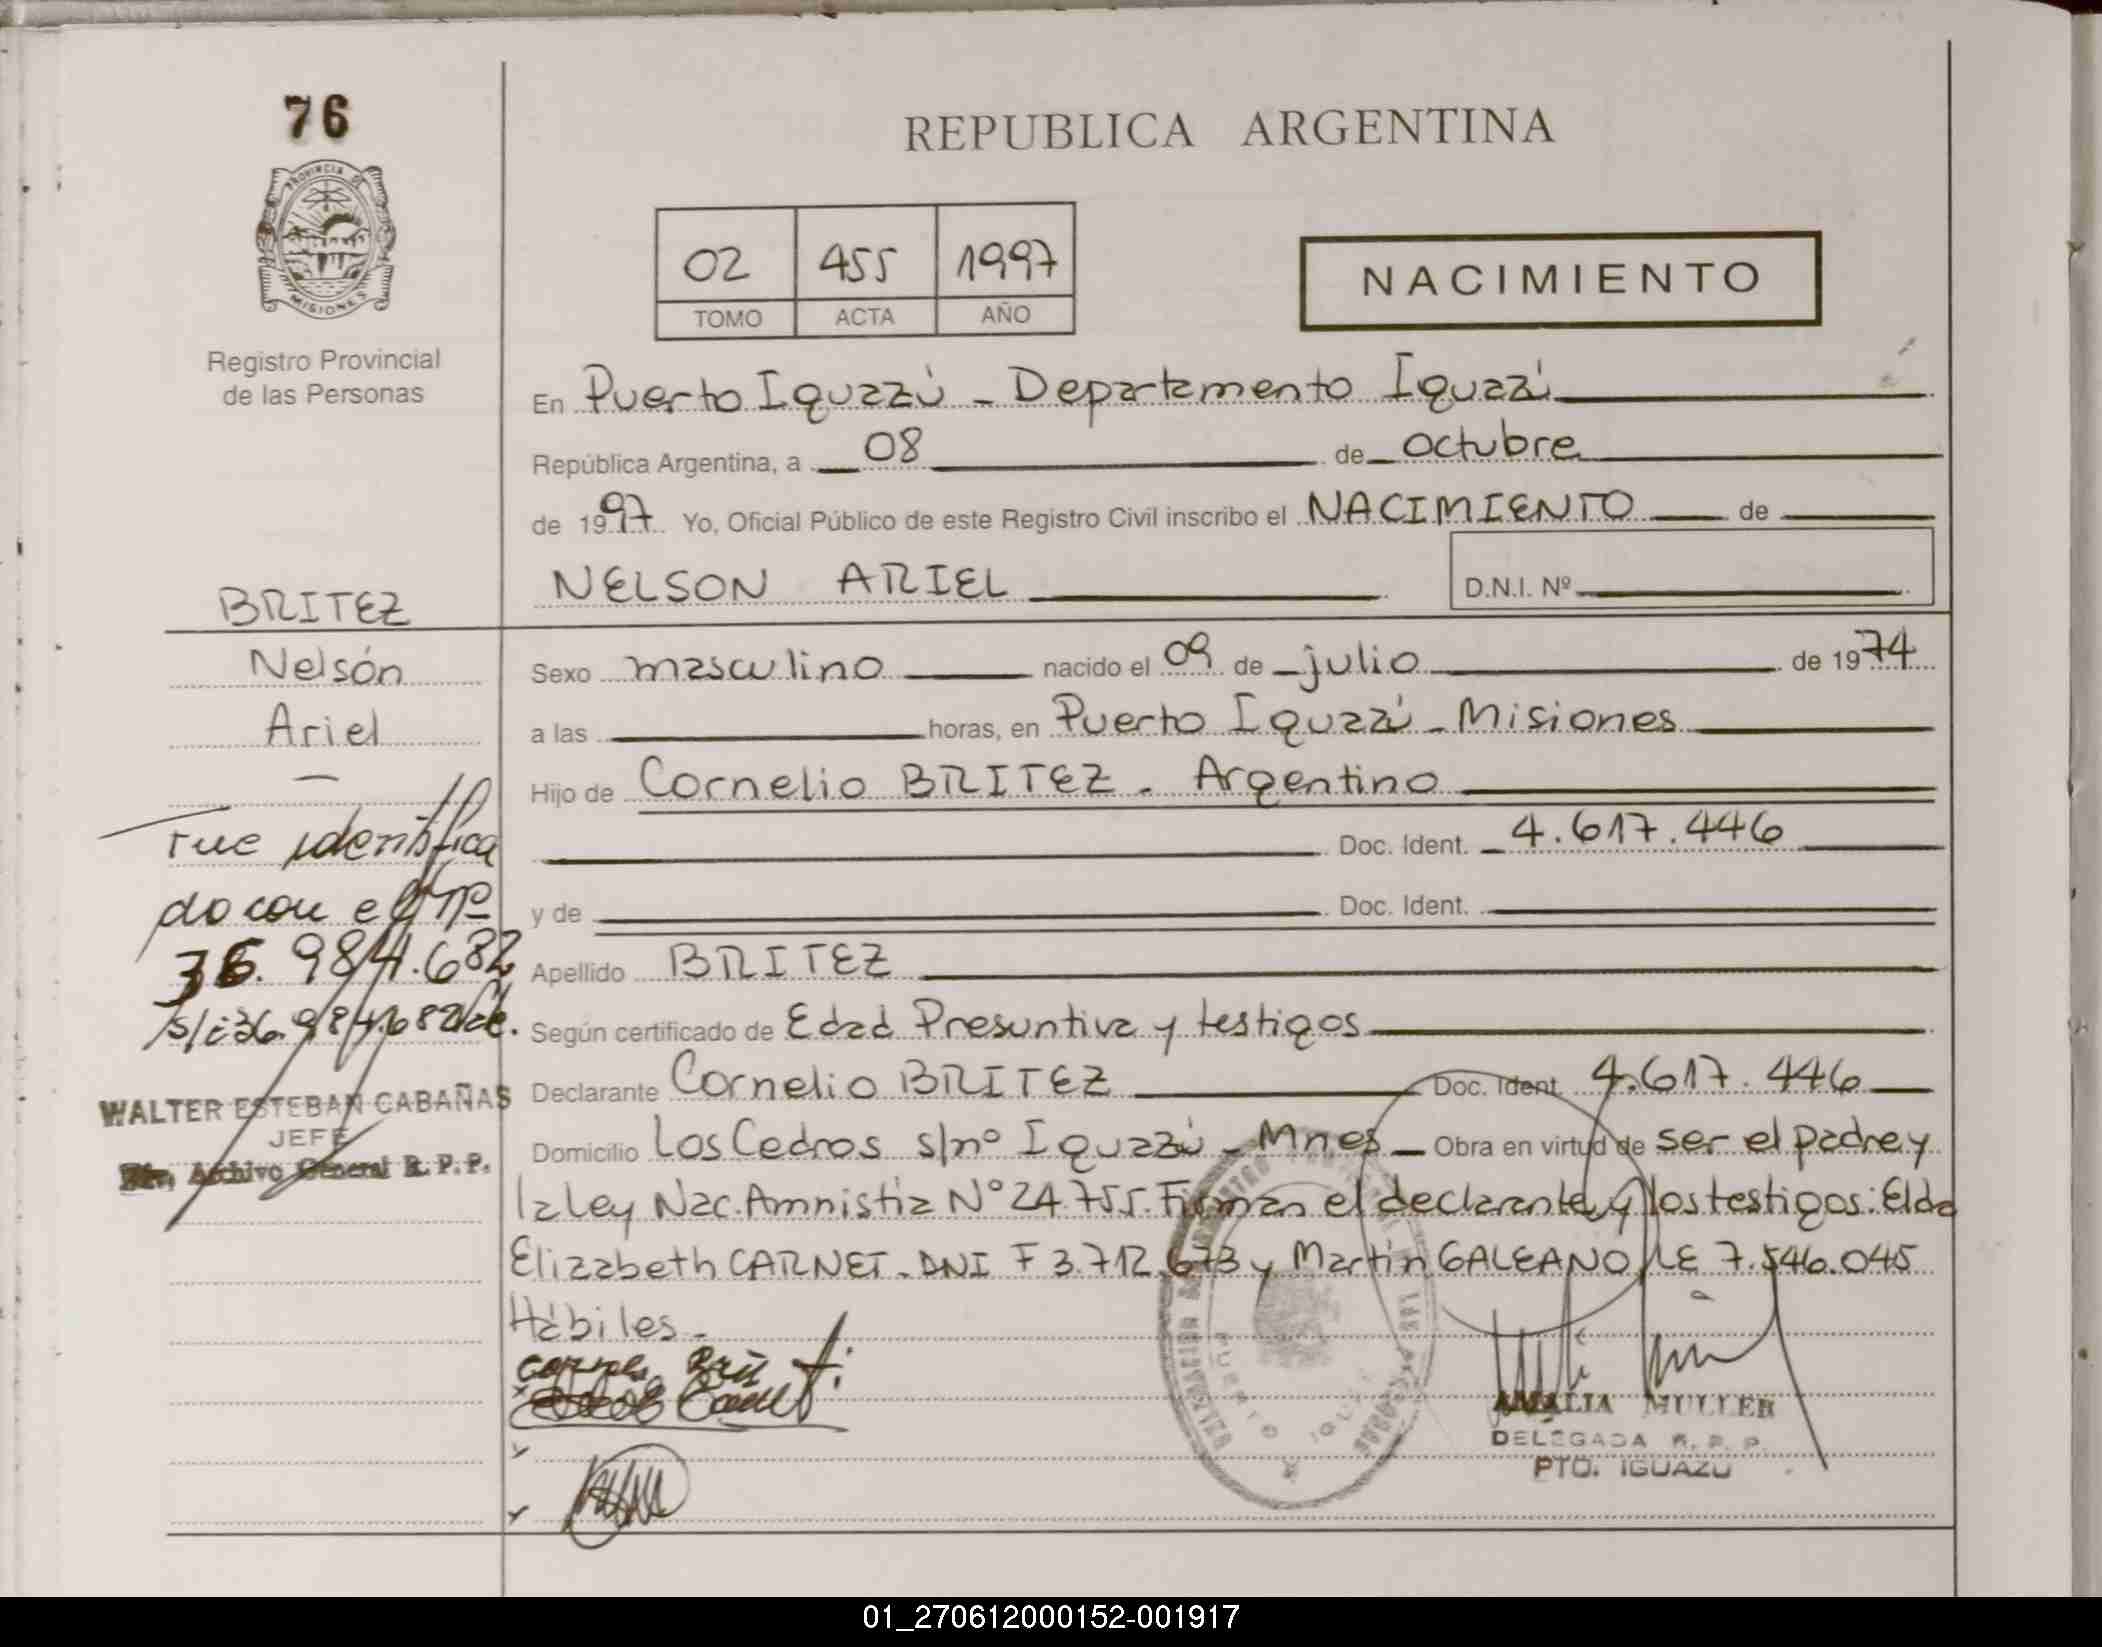 76
REPUBLICA ARGENTINA
PROVINCIA DE
MISIONES
02 455 1997
TOMO ACTA AÑO
NACIMIENTO
Registro Provincial
de las Personas
En Puerto Iguazú - Departamento Iguazú
República Argentina, a 08 de octubre
de 1997 Yo, Oficial Público de este Registro Civil inscribo el NACIMIENTO de
NELSON ARIEL D.N.I. Nº
BRITEZ
Nelsón
Ariel
Sexo masculino nacido el 09 de julio de 1974
a las horas, en Puerto Iguazú - Misiones
Hijo de Cornelio BRITEZ. Argentino
Doc. Ident. 4.617.446
y de Doc. Ident.
Apellido BRITEZ
Según certificado de Edad Presuntiva y testigos
Declarante Cornelio BRITEZ Doc. Ident. 4.617.446
Domicilio Los Cedros s/nº Iguazú - Mnes Obra en virtud de ser el padre y
la Ley Nac. Amnistia Nº 24.755. Firman el declarante y los testigos: Elda
Elizabeth CARNET. DNI F 3.712.673 y Martín GALEANO LE 7.546.045
Hábiles.
Fue identifica
do con el Nº
36.984.682
s/i 36.984.682
WALTER ESTEBAN CABAÑAS
JEFE
Archivo General R. P. P.
AMALIA MULLER
DELEGADA R. P. P.
PTO. IGUAZU
01_270612000152-001917